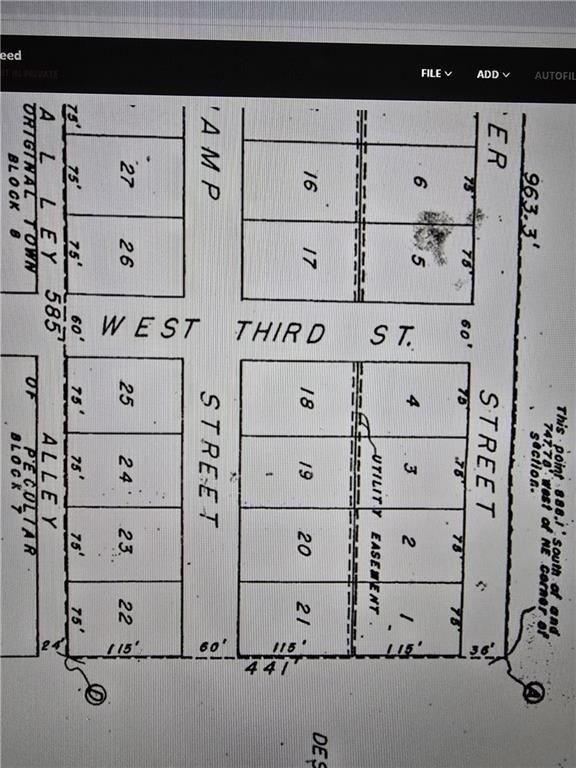 eed
FILE
ADD
AUTOFIL
963.3'
ER
STREET
This point 888.1' South of and
747.78' west of NE Corner of
Section.
75'
75'
60'
75'
75'
75'
75'
36'
6
5
4
3
2
1
115'
UTILITY EASEMENT
16
17
18
19
20
21
115'
441'
AMP
STREET
60'
WEST THIRD ST.
27
26
25
24
23
22
115'
75'
75'
75'
60'
75'
75'
75'
75'
24'
ALLEY
585'
ALLEY
ORIGINAL TOWN
BLOCK 8
OF PECULIAR
BLOCK 7
D
A
DES